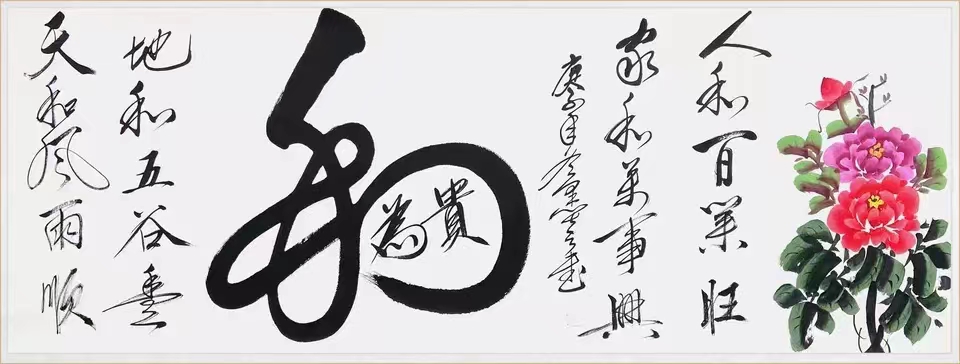 天和风雨順
地和五谷豊
和
為貴
庚子年
家和萬事興
人和百業旺